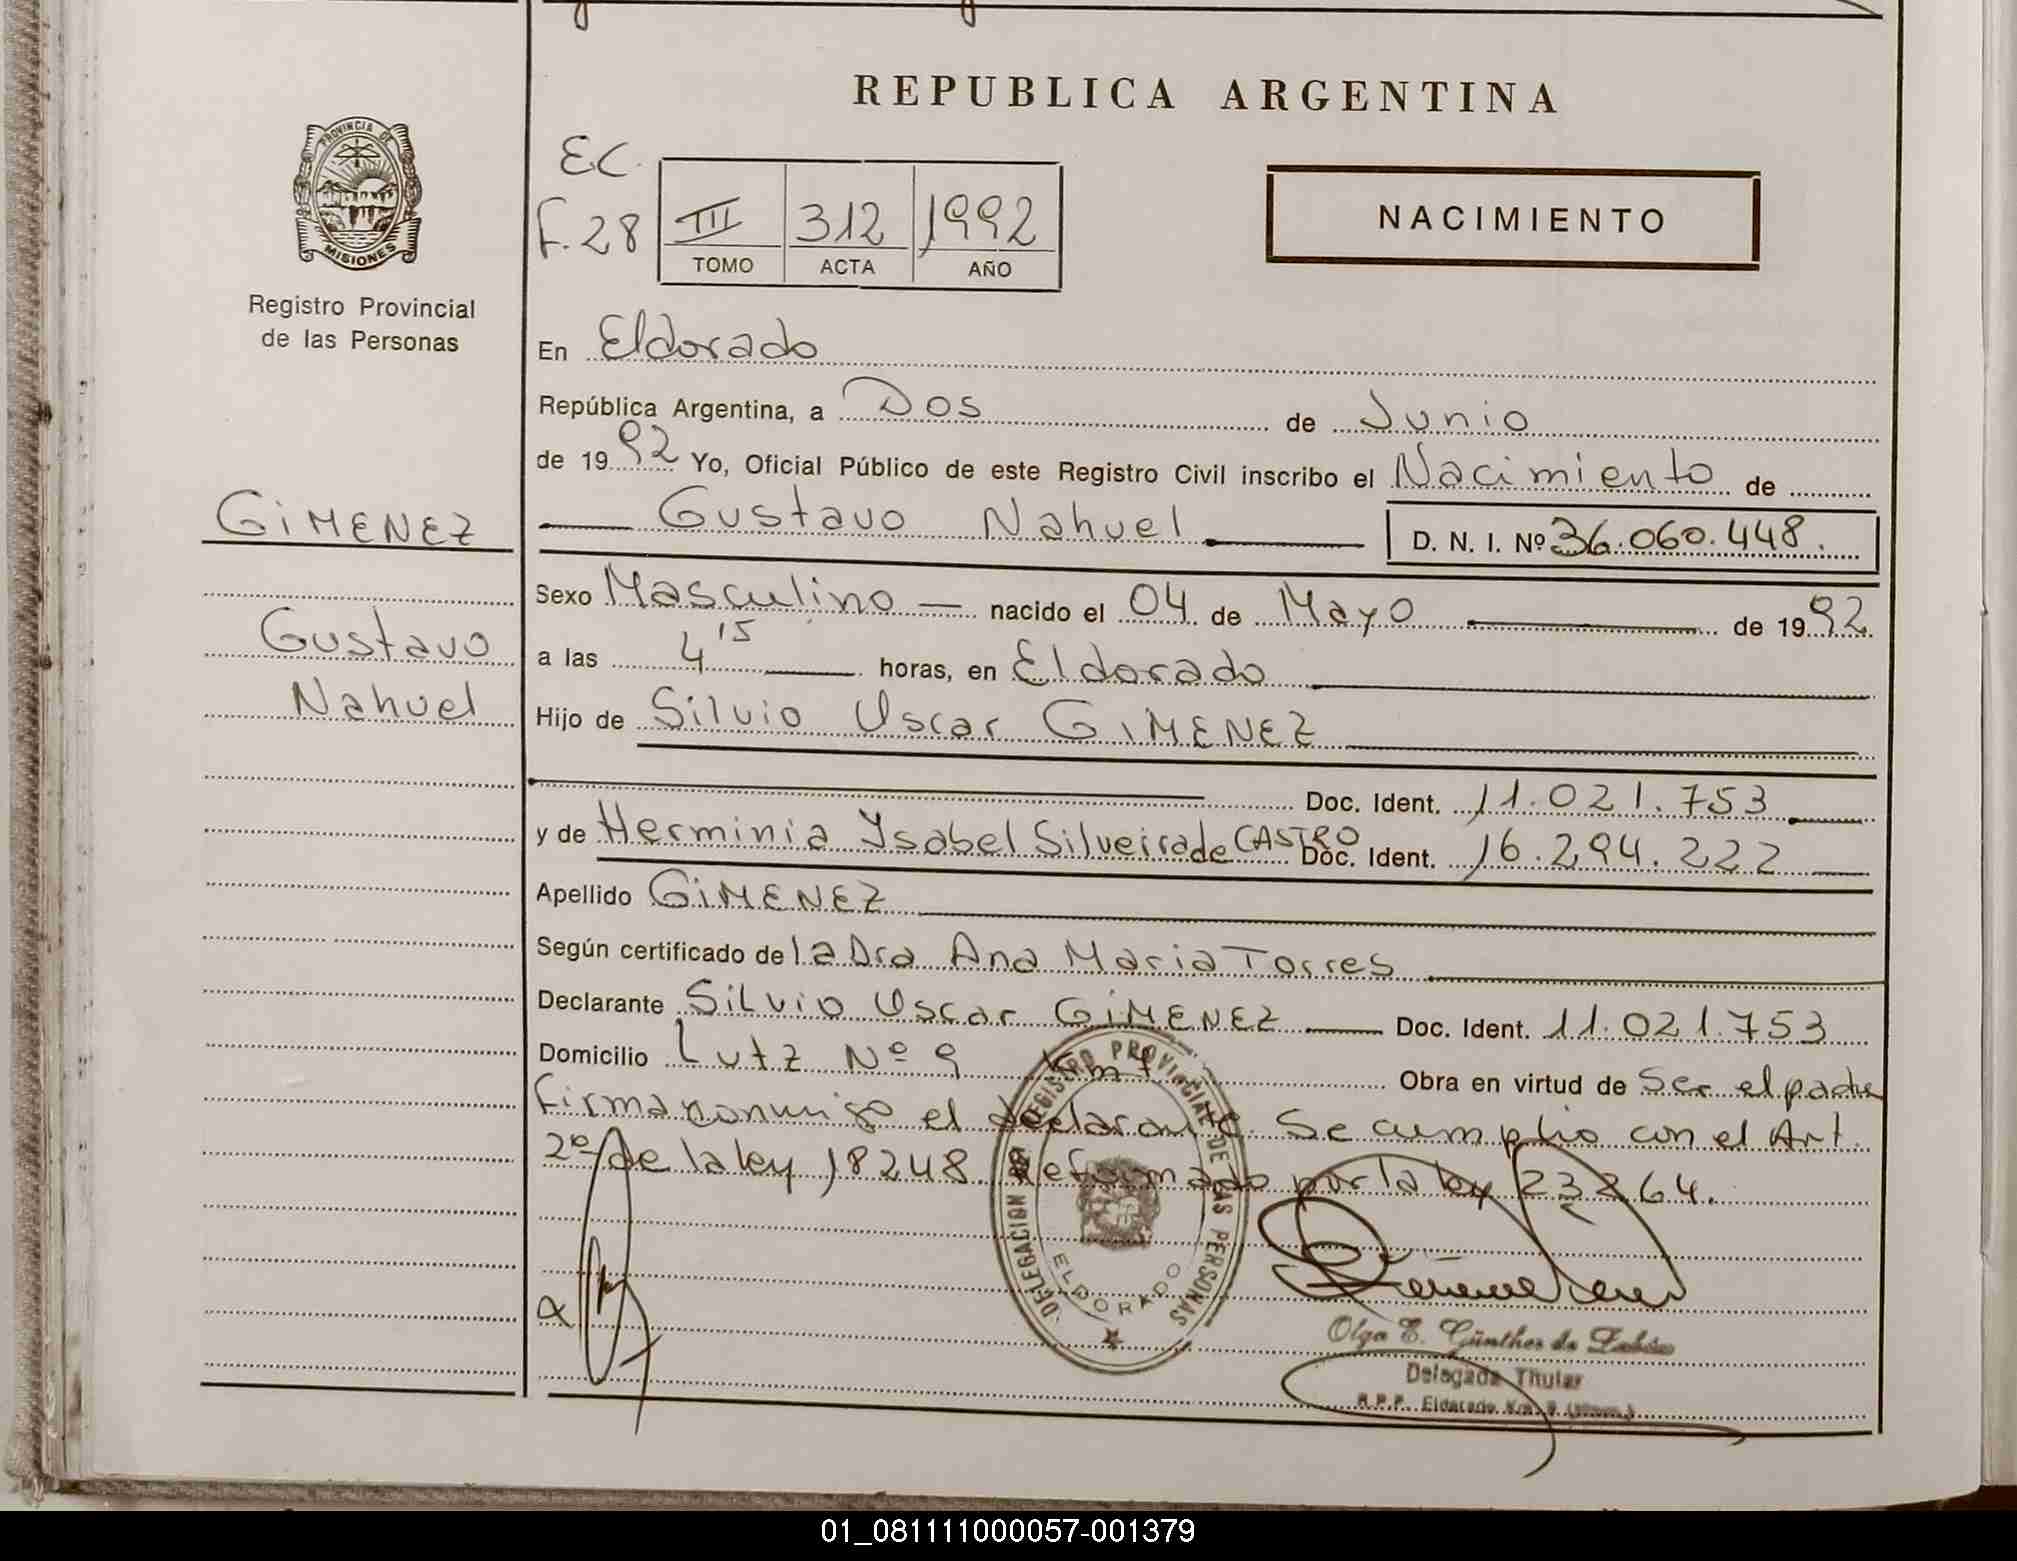 REPUBLICA ARGENTINA
PROVINCIA DE
MISIONES
Registro Provincial
de las Personas
E.C.
F. 28
III 312 1992
TOMO ACTA AÑO
NACIMIENTO
En Eldorado
República Argentina, a Dos de Junio
de 1992 Yo, Oficial Público de este Registro Civil inscribo el Nacimiento de
GiMENEZ
Gustavo Nahuel D. N. I. Nº 36.060.448.
Sexo Masculino — nacido el 04 de Mayo de 1992
Gustavo
a las 4 15 horas, en Eldorado
Nahuel
Hijo de Silvio Oscar GiMENEZ
Doc. Ident. 11.021.753
y de Herminia Ysabel Silveira de CASTRO Doc. Ident. 16.294.222
Apellido GiMENEZ
Según certificado de la Dra Ana Maria Torres
Declarante Silvio Oscar GiMENEZ Doc. Ident. 11.021.753
Domicilio Lutz Nº 9 Km Obra en virtud de Ser el padre
Firma conmigo el declarante. Se cumplio con el Art.
2º de la ley 18248 Reformado por la ley 23264.
DELEGACION DEL REGISTRO PROVINCIAL DE LAS PERSONAS
ELDORADO
Olga E. Günther de
Delegada Titular
R.P.P. Eldorado Km. 9
01_081111000057-001379